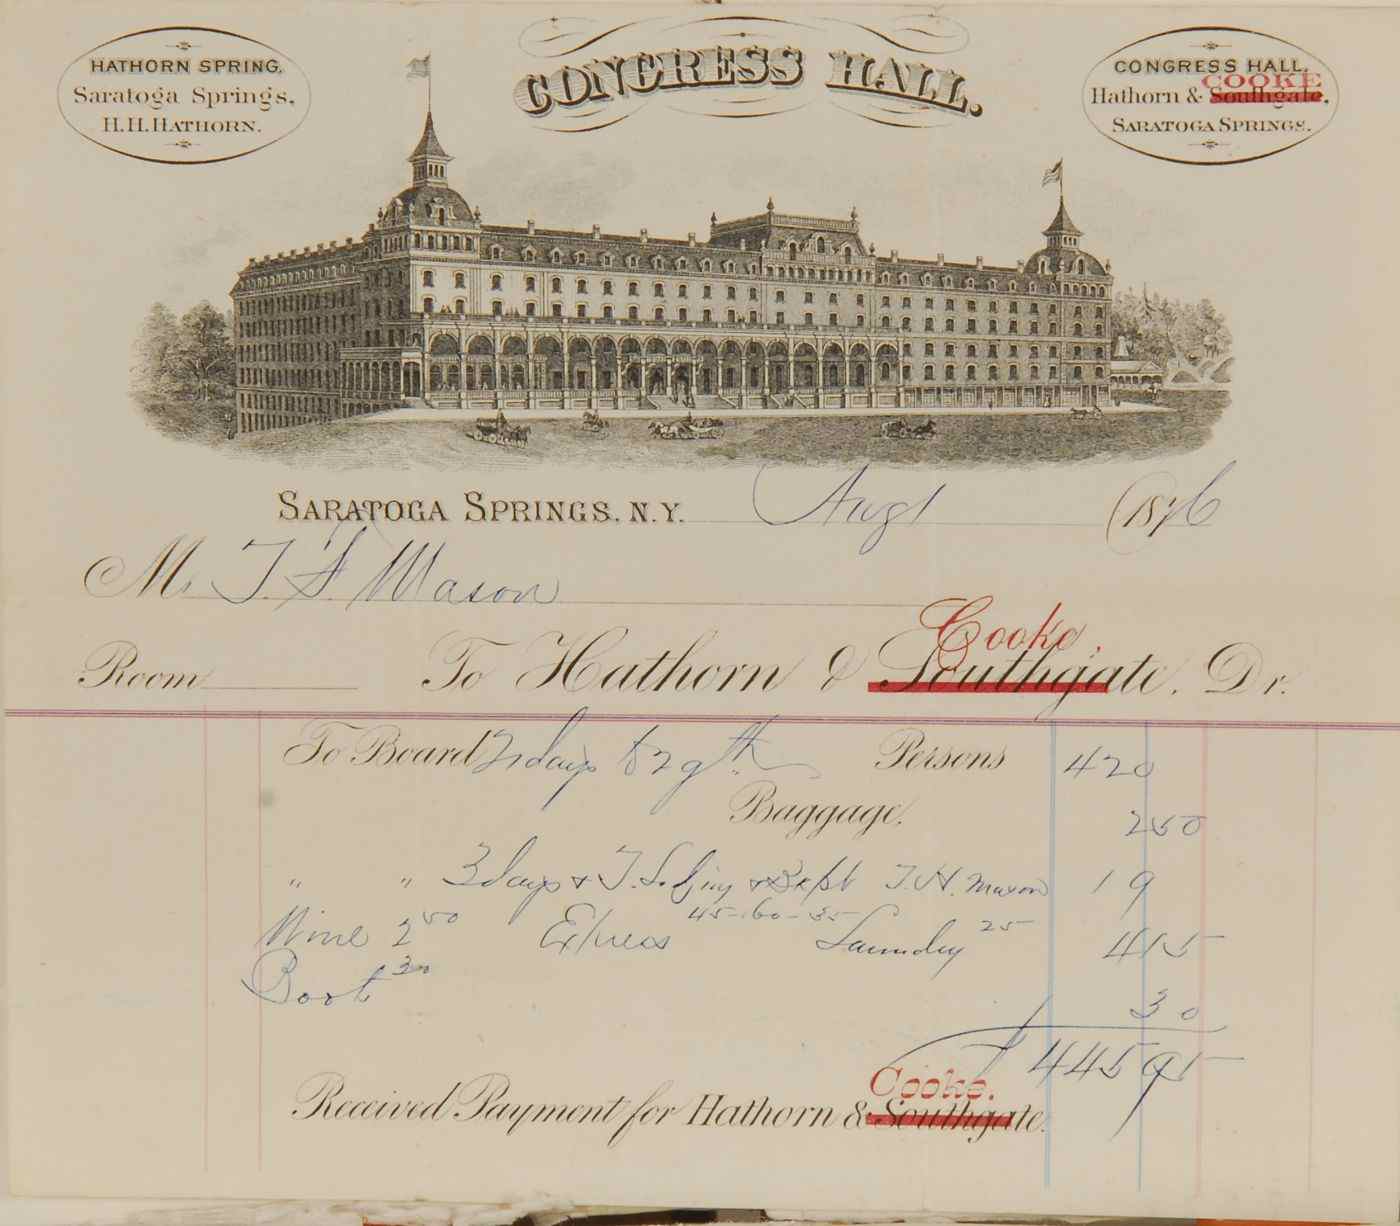 HATHORN SPRING,
Saratoga Springs,
H.H. HATHORN.
CONGRESS HALL.
CONGRESS HALL,
COOKE
Hathorn & Southgate,
SARATOGA SPRINGS.
SARATOGA SPRINGS. N.Y. Aug 1 1876
M. T. S. Mason
Cooke.
Room To Hathorn & Southgate. Dr.
To Board 21 days to 29th Persons 420
Baggage. 250
" " 3 days & T. H. Mason 19
Wine 2 50 Express 45-60-35 Laundry 25 415
Boot 30 30
445 95
Cooke.
Received Payment for Hathorn & Southgate.